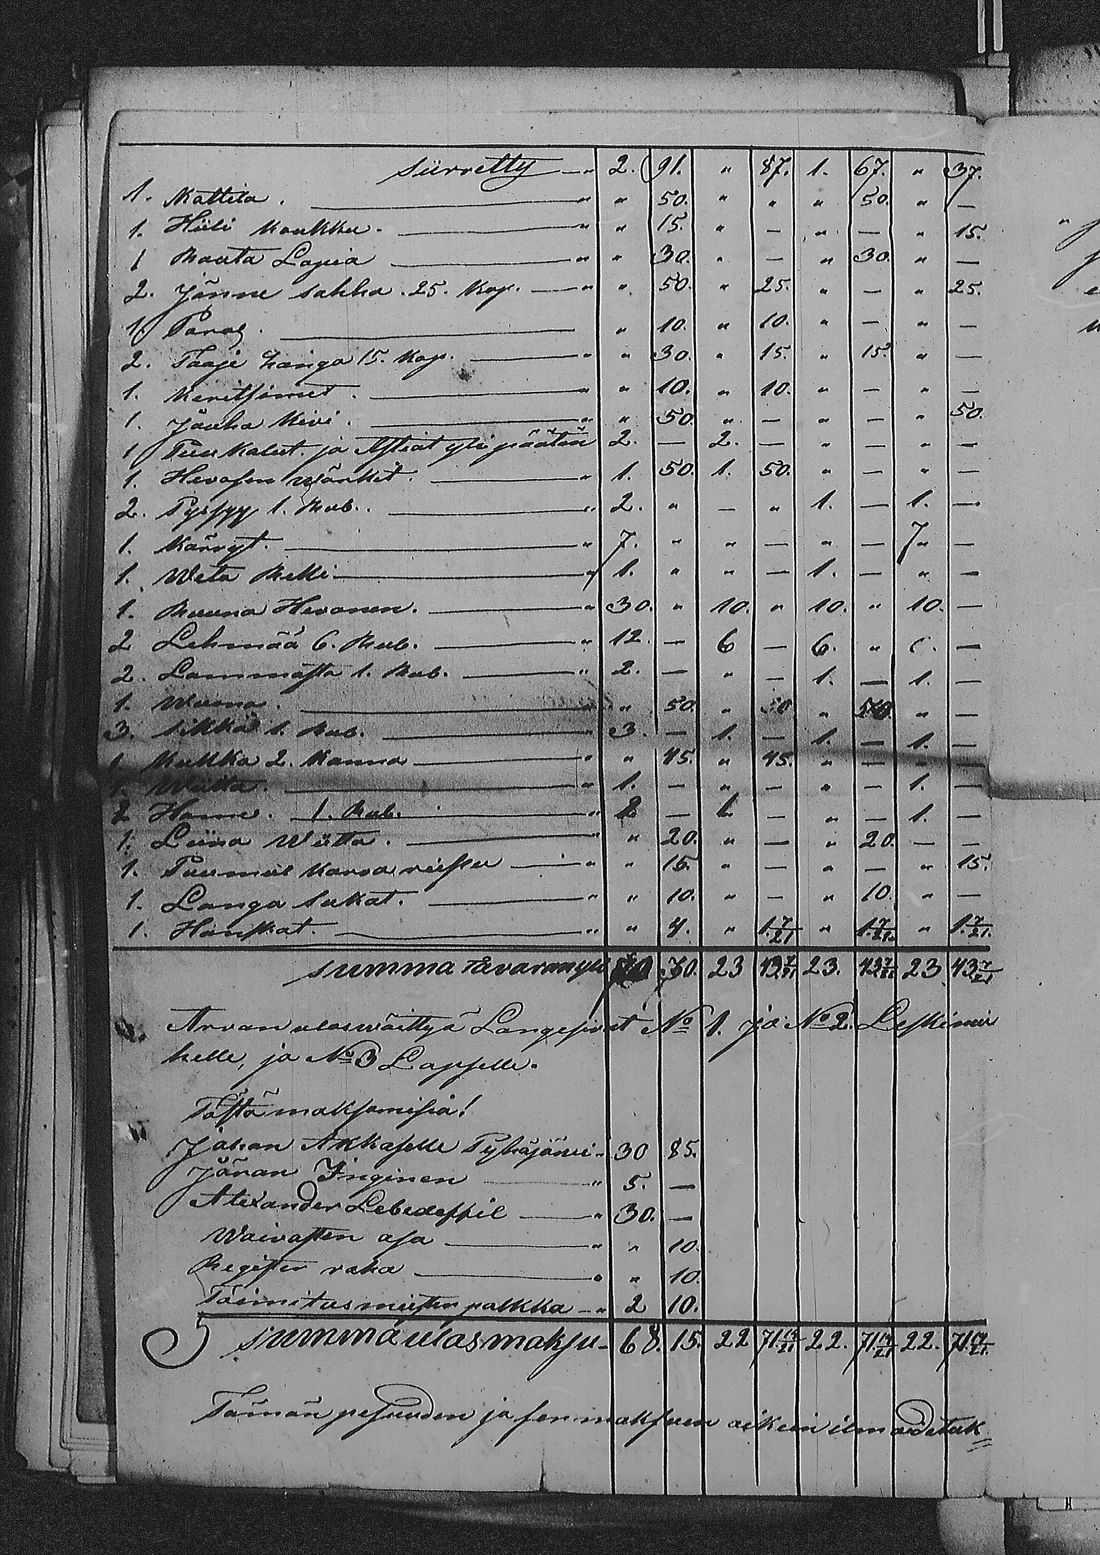 Siirretty — " 2. 91. " 87. 1. 67. " 37.
1. Kattila. — " " 50. " " " 50. " —
1. Hiili Koukku. — " " 15. " — " — " 15.
1 Rauta Lapia — " " 30. " — " 30. " —
2. Jänne sakka. 25. Kop. — " " 50. " 25. " — " 25.
1. — " 10. " 10. " — " —
2. Taaje 15. Kop. — " " 30. " 15. " 15. " —
1. Keritsimet. — " " 10. " 10. " — " —
1. Jauho Kivi. — " " 50. " — " — " 50.
1 Puu Kalut ja Astiat yli päätän 2. — 2. — " — " —
1. Hevosen wärkit. — " 1. 50. 1. 50. " — " —
2. Pyssyy 1. Rub. — " 2. " — " 1. — 1. —
1. Kärryt. — " 7. " " — " — 7 " —
1. Weto Rekki — " 1. " " — 1. — " —
1. Ruuna Hevonen. — " 30. " 10. " 10. " 10. —
2 Lehmää 6. Rub. — " 12. — 6 — 6. " 6. —
2. Lammasta 1. Rub. — " 2. — " — 1. — 1. —
1. Wuona. — " " 50. " 50 " " —
3. Sikkaa 1. Rub. — " 3. — 1. — 1. — 1. —
1 Kukka 2. Kanna — " " 45. " 45. " — " —
1. — " 1. — " — " — 1. —
2 Hame. 1. Rub. — " 2 — 1 — " — 1. —
1. Liina — " " 20. " — " 20. — —
1. — " " 15. " — " — " 15.
1. Langa sukat. — " " 10. " — " 10. " —
1. Hanskat. — " " 4. " 1 7/21 " 1 7/21 " 1 7/21
Summa tavaran yli 70 70. 23 43 7/21 23. 43 7/21 23 43 7/21
Arvan ulosweittyä Langesivat No 1. ja No 2. Leskimie
helle, ja No 3 Lapselle.
Tästä maksamisia!
Johan Akkaselle Pyhäjärvi " 30 85.
Jöran Inginen — " 5. —
Alexander Lebedeffil — " 30. —
Waivasten osa — " " 10.
Register raha — " " 10.
Toimitusmiesten palkka — " 2 10.
Summa ulosmaksu — 68. 15. 22 71 14/21 22. 71 14/21 22. 71 14/21
Tämän pesuuden ja sen maksuen oikein ilmoadetuk=